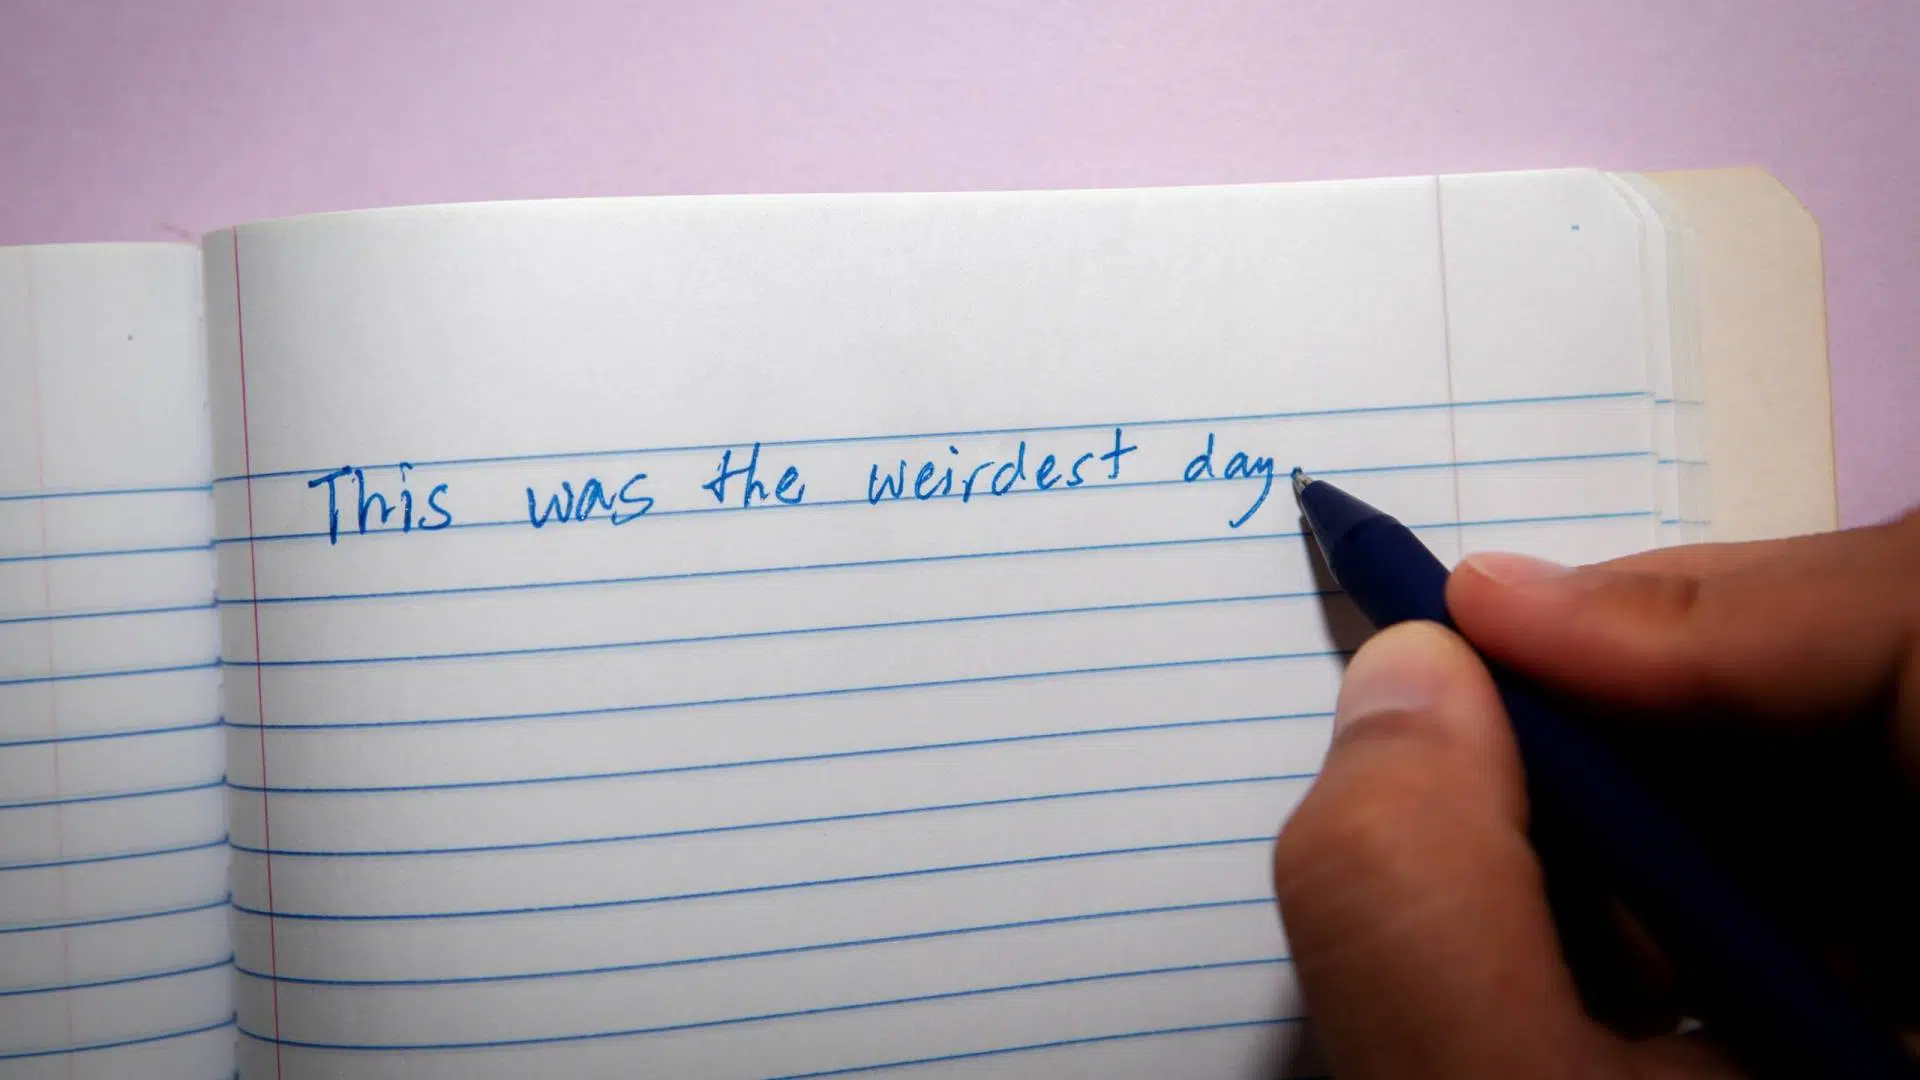 This was the weirdest day.